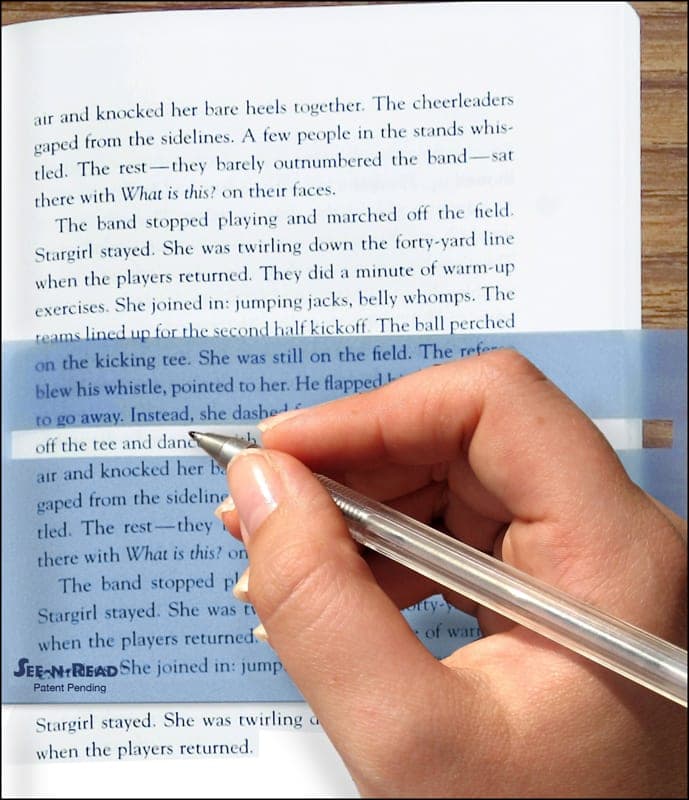 air and knocked her bare heels together. The cheerleaders
gaped from the sidelines. A few people in the stands whis-
tled. The rest—they barely outnumbered the band—sat
there with What is this? on their faces.
The band stopped playing and marched off the field.
Stargirl stayed. She was twirling down the forty-yard line
when the players returned. They did a minute of warm-up
exercises. She joined in: jumping jacks, belly whomps. The
teams lined up for the second half kickoff. The ball perched
on the kicking tee. She was still on the field. The
blew his whistle, pointed to her. He flapped
to go away. Instead, she dashed
off the tee and
air and knocked her
gaped from the
tled. The rest—they
there with What is this? on
The band stopped
Stargirl stayed. She was
when the players returned. of
SEE-N-READ She joined in:
Patent Pending
Stargirl stayed. She was twirling
when the players returned.